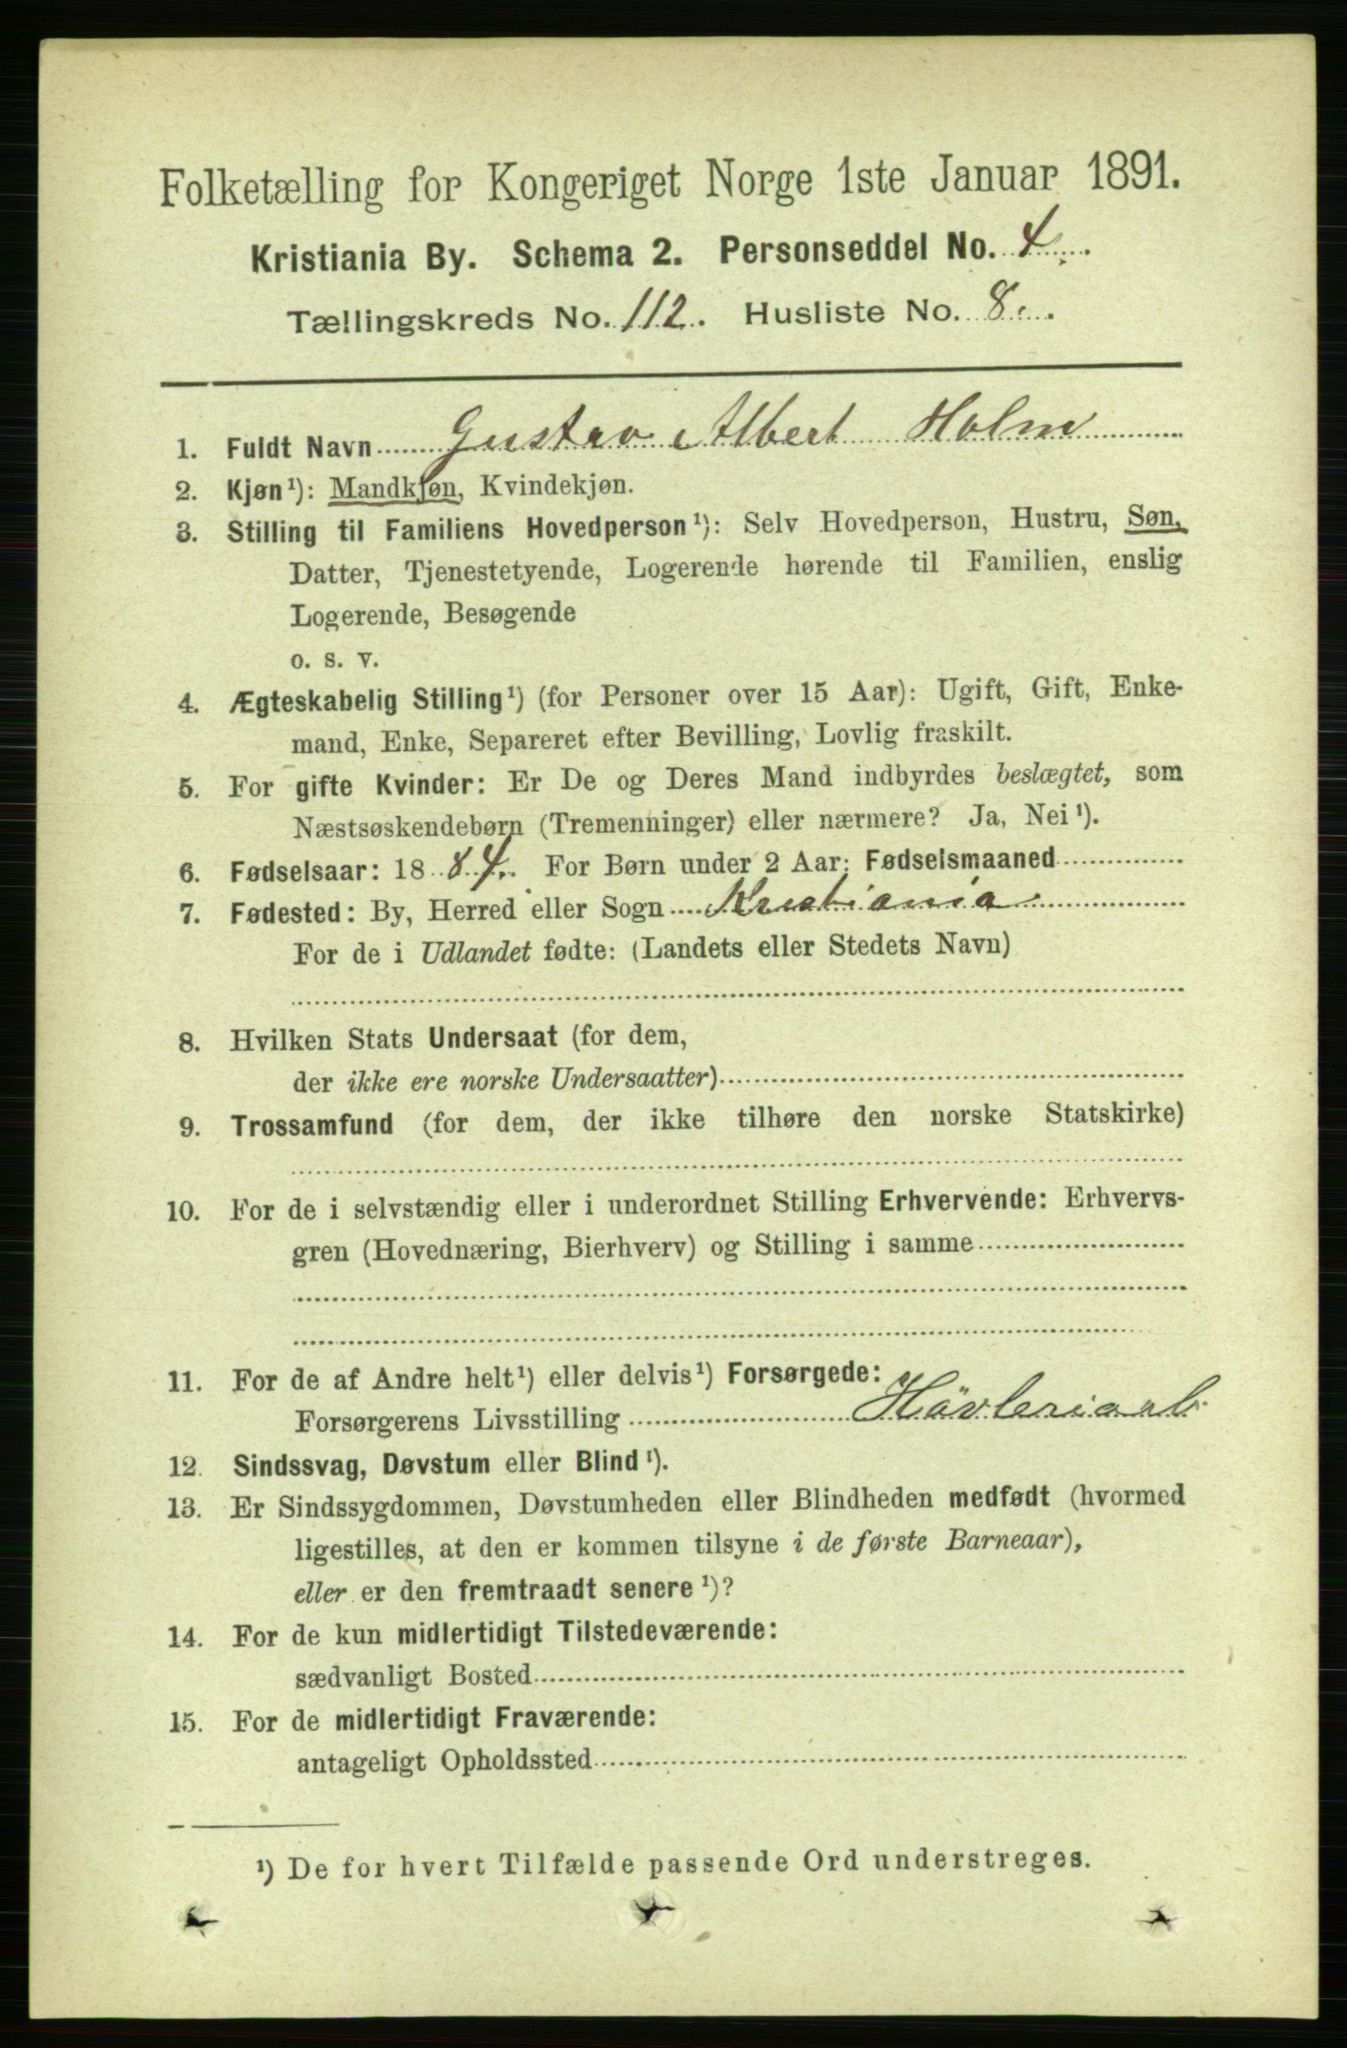 Folketælling for Kongeriget Norge 1ste Januar 1891.
Kristiania By. Schema 2. Personseddel No. 4.
Tællingskreds No. 112. Husliste No. 8.
1. Fuldt Navn Gustav Albert Holm
2. Kjøn¹): Mandkjøn, Kvindekjøn.
3. Stilling til Familiens Hovedperson¹): Selv Hovedperson, Hustru, Søn,
Datter, Tjenestetyende, Logerende hørende til Familien, enslig
Logerende, Besøgende
o. s. v.
4. Ægteskabelig Stilling¹) (for Personer over 15 Aar): Ugift, Gift, Enke-
mand, Enke, Separeret efter Bevilling, Lovlig fraskilt.
5. For gifte Kvinder: Er De og Deres Mand indbyrdes beslægtet, som
Næstsøskendebørn (Tremenninger) eller nærmere? Ja, Nei¹).
6. Fødselsaar: 1884. For Børn under 2 Aar: Fødselsmaaned
7. Fødested: By, Herred eller Sogn Kristiania
For de i Udlandet fødte: (Landets eller Stedets Navn)
8. Hvilken Stats Undersaat (for dem,
der ikke ere norske Undersaatter)
9. Trossamfund (for dem, der ikke tilhøre den norske Statskirke)
10. For de i selvstændig eller i underordnet Stilling Erhvervende: Erhvervs-
gren (Hovednæring, Bierhverv) og Stilling i samme
11. For de af Andre helt¹) eller delvis¹) Forsørgede:
Forsørgerens Livsstilling Hövleriarb.
12. Sindssvag, Døvstum eller Blind¹).
13. Er Sindssygdommen, Døvstumheden eller Blindheden medfødt (hvormed
ligestilles, at den er kommen tilsyne i de første Barneaar),
eller er den fremtraadt senere¹)?
14. For de kun midlertidigt Tilstedeværende:
sædvanligt Bosted
15. For de midlertidigt Fraværende:
antageligt Opholdssted
¹) De for hvert Tilfælde passende Ord understreges.